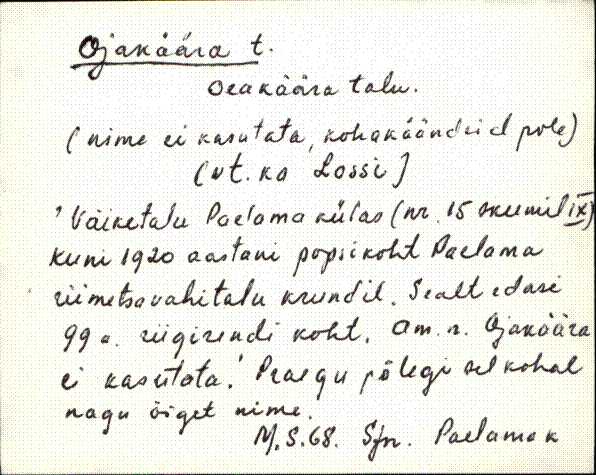 Ojakäära t.
Oeakäära talu.
(nime ei kasutata, kohakäändeid pole)
(vt. ka Lossi)
' Väiketalu Paelama külas (nr. 15 skeemil IX)
kuni 1920 aastani popsikoht Paelama
riimetsavahitalu krundil. Sealt edasi
99 a. riigirendi koht. Am. n. Ojakäära
ei kasutata.' Praegu põlegi sel kohal
nagu õiget nime.
M.S.68. Sjn. Paelama k